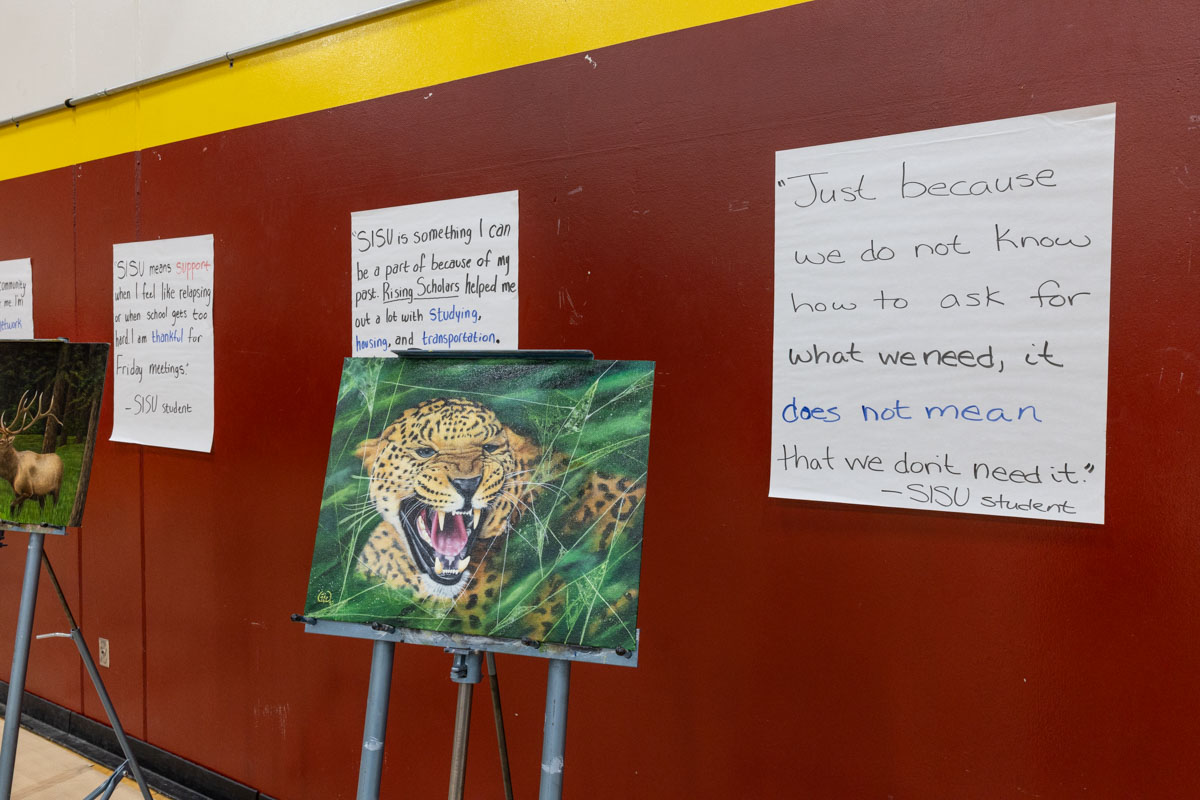 community
me I'm
network
"SISU means support
when I feel like relapsing
or when school gets too
hard. I am thankful for
Friday meetings."
- SISU student
"SISU is something I can
be a part of because of my
past. Rising Scholars helped me
out a lot with studying,
housing, and transportation.
"Just because
we do not know
how to ask for
what we need, it
does not mean
that we don't need it."
- SISU student